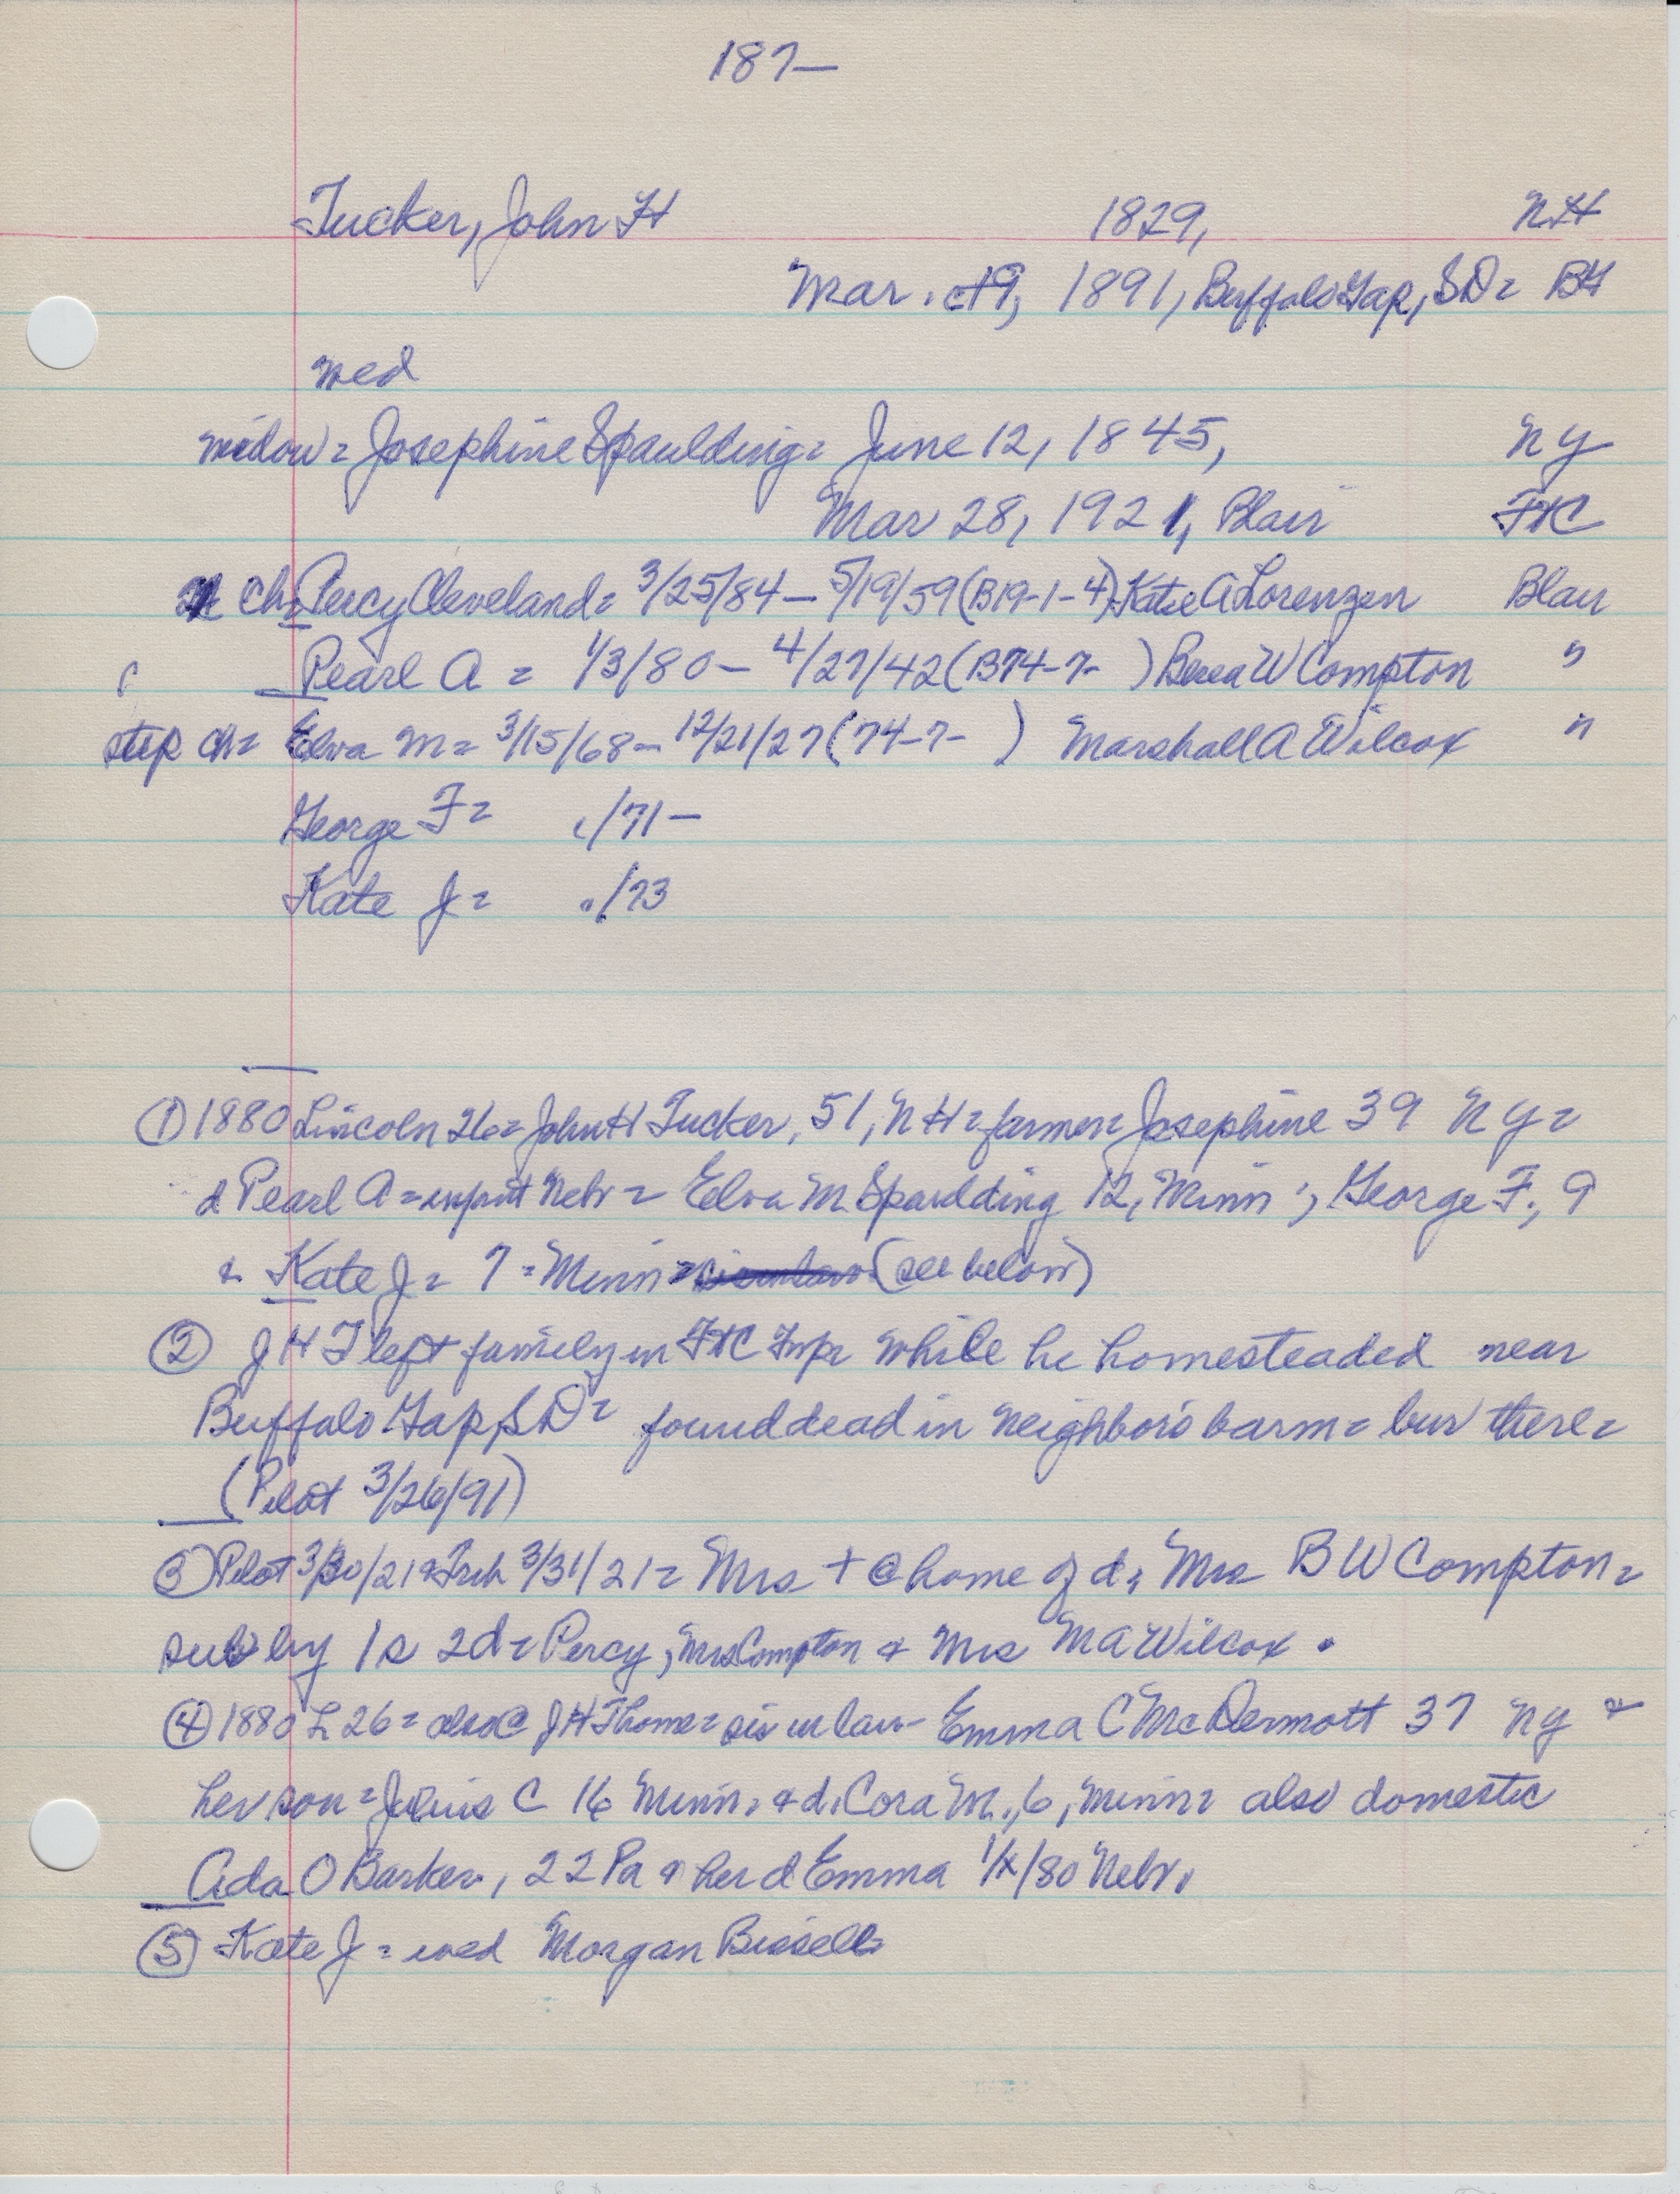 187—
Tucker, John H 1829, NH
Mar. c19, 1891, Buffalo Gap, SD = BG
wed
widow = Josephine Spaulding = June 12, 1845, NY
Mar 28, 1921, Blair FtC
ch = Percy Cleveland = 3/25/84 — 5/19/59 (B19-1-4) Katie A Lorenzen Blair
Pearl A = 1/3/80 — 4/27/42 (B74-7- ) Berea W Compton "
step ch = Elva M = 3/15/68 — 12/21/27 (74-7- ) Marshall A Wilcox "
George F = /71 —
Kate J = /73
① 1880 Lincoln 26 = John H Tucker, 51, NH = farmer = Josephine 39 NY =
d Pearl A = infant Nebr = Elva M Spaulding 12, Minn; George F., 9
& Kate J = 7 = Minn = (see below)
② J H T left family in FtC Twp while he homesteaded near
Buffalo Gap, SD = found dead in neighbor's barn = bur there =
(Pilot 3/26/91)
③ Pilot 3/30/21 & Trib 3/31/21 = Mrs + @ home of d, Mrs B W Compton =
sur by 1s 2d = Percy, Mrs Compton & Mrs M A Wilcox.
④ 1880 L 26 = also @ J H T home = sis in law — Emma C McDermott 37 NY &
her son = Julius C 16 Minn. & d. Cora M., 6, Minn = also domestic
Ada O Barker, 22 Pa & her d Emma 1/x/80 Nebr.
⑤ Kate J = wed Morgan Bissell